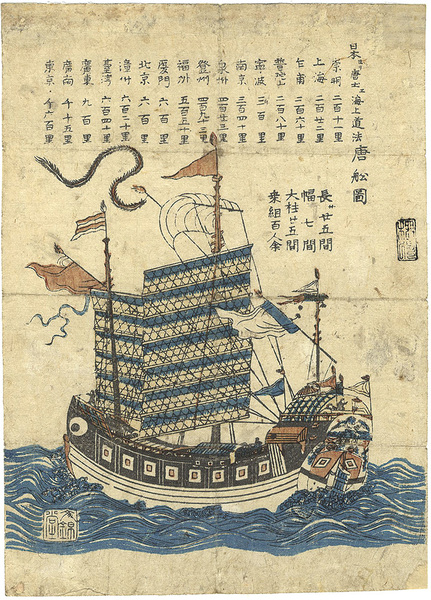 日本ヨリ唐土エ海上道法
唐舩圖
崇明 二百十里
上海 二百廿二里
乍甫 二百六十里
普陀山 二百八十里
寧波 三百里
南京 三百四十里
泉州 四百廿三里
登州 四百九十三里
福州 五百五十里
厦門 六百里
北京 六百里
漳州 六百二十里
臺灣 六百四十里
廣東 九百里
廣南 千十五里
東京 千六百里
長サ廿五間
幅七間
大柱廿五間
乗組百人余
文錦堂